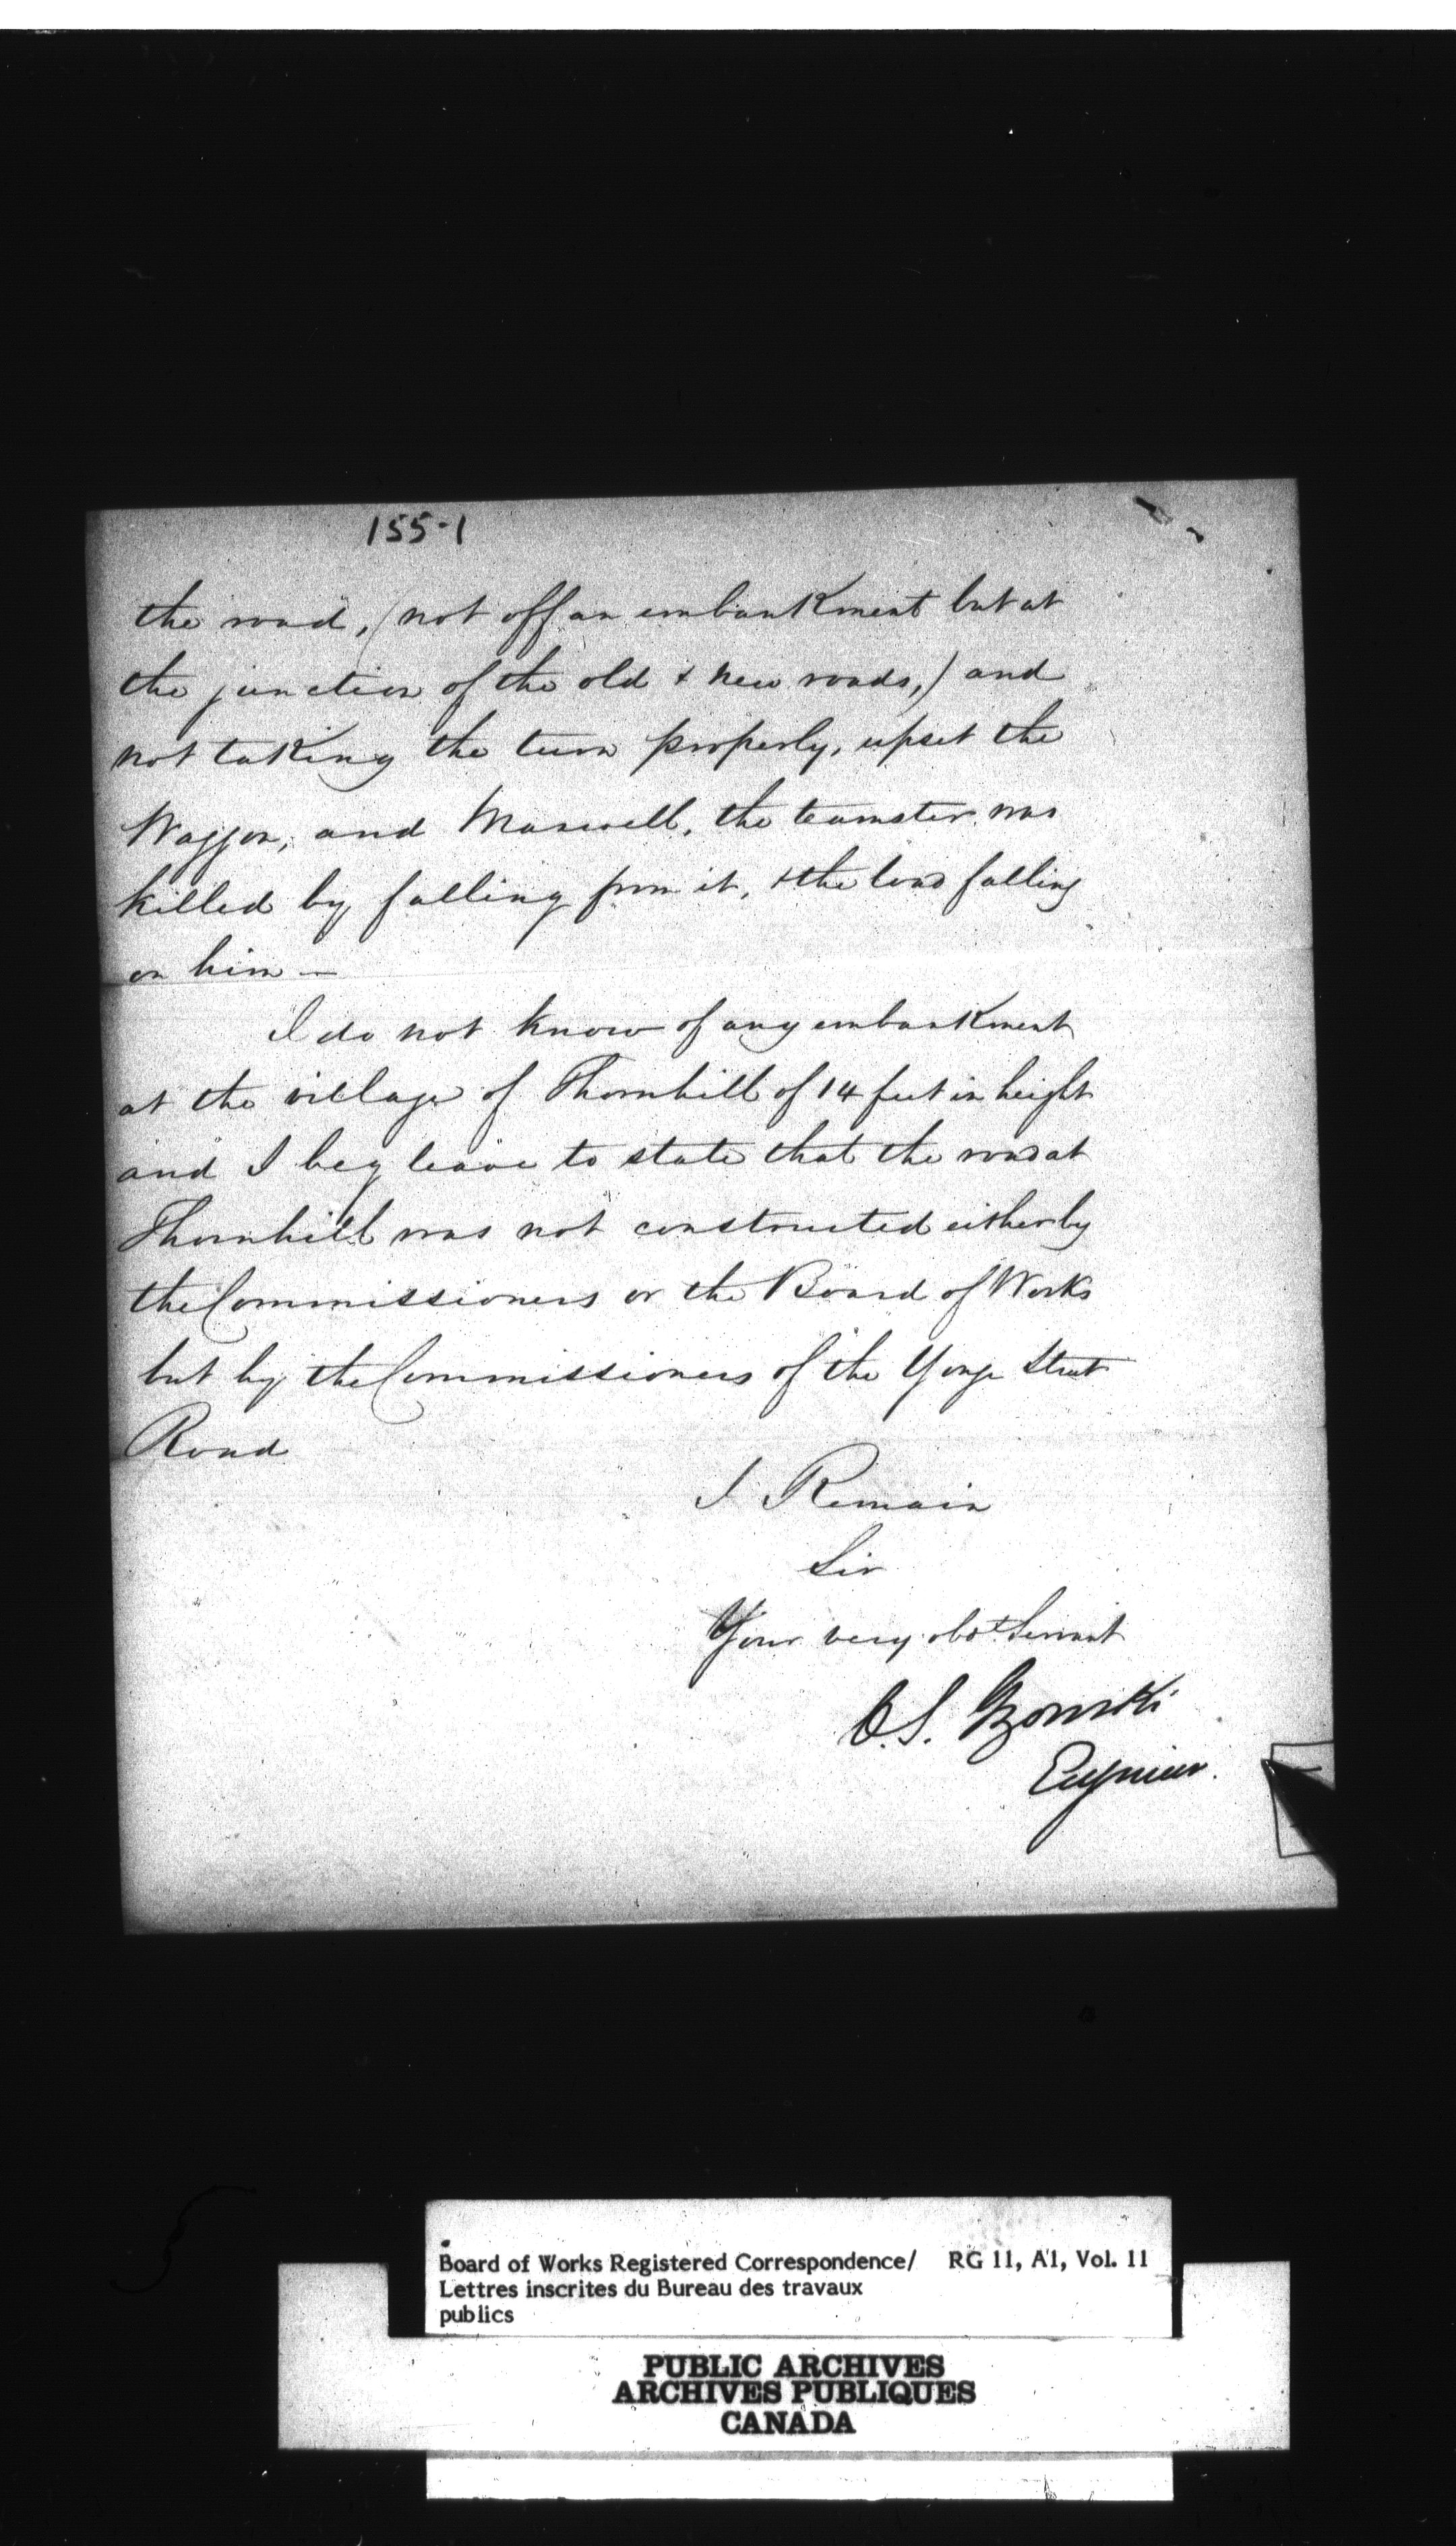 155-1
the road, (not off an embankment but at
the junction of the old & new roads,) and
not taking the turn properly, upset the
Waggon, and Maxwell, the teamster was
killed by falling from it, & the load falling
on him —
I do not know of any embankment
at the village of Thornhill of 14 feet in height
and I beg leave to state that the road at
Thornhill was not constructed either by
the Commissioners or the Board of Works
but by the Commissioners of the Yonge Street
Road
I Remain
Sir
Your very obt Servant
C.S. Gzowski
Engineer.
Board of Works Registered Correspondence/ RG 11, A1, Vol. 11
Lettres inscrites du Bureau des travaux
publics
PUBLIC ARCHIVES
ARCHIVES PUBLIQUES
CANADA